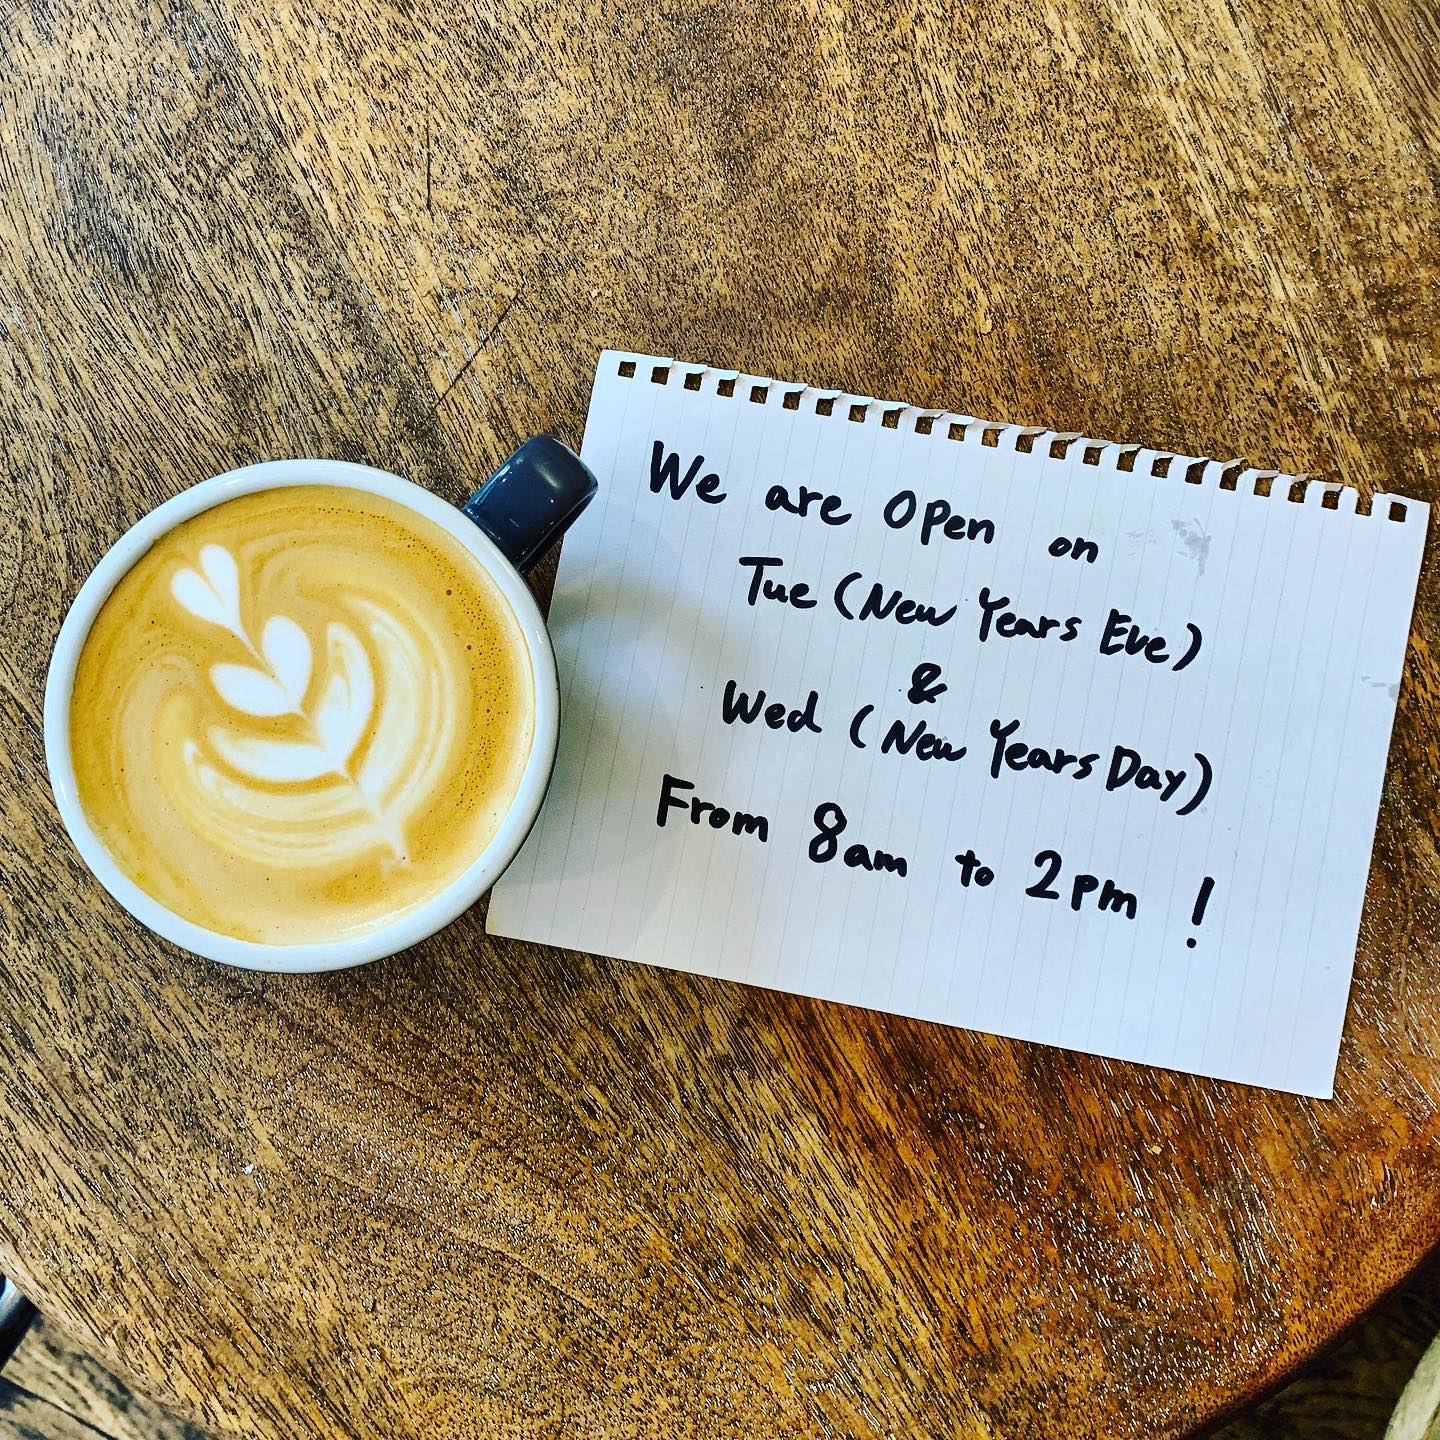 We are open on
Tue (New Years Eve)
&
Wed (New Years Day)
From 8am to 2pm !